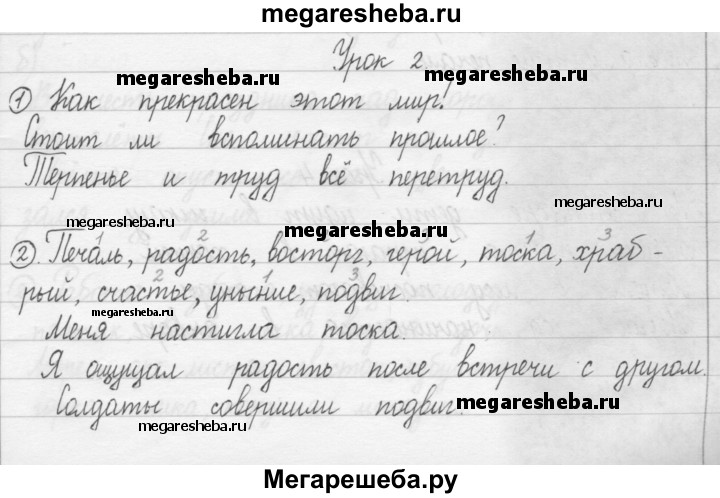 megaresheba.ru
Урок 2.
megaresheba.ru megaresheba.ru
1 Как прекрасен этот мир!
Стоит ли вспоминать прошлое?
Терпенье и труд всё перетруд.
megaresheba.ru
megaresheba.ru megaresheba.ru
1 2 2 3 1 3
2. Печаль, радость, восторг, герой, тоска, храб-
2 1 3
рый, счастье, уныние, подвиг.
megaresheba.ru megaresheba.ru
Меня настигла тоска.
Я ощущал радость после встречи с другом.
Солдаты совершили подвиг.
megaresheba.ru
megaresheba.ru megaresheba.ru
Мегарешеба.ру